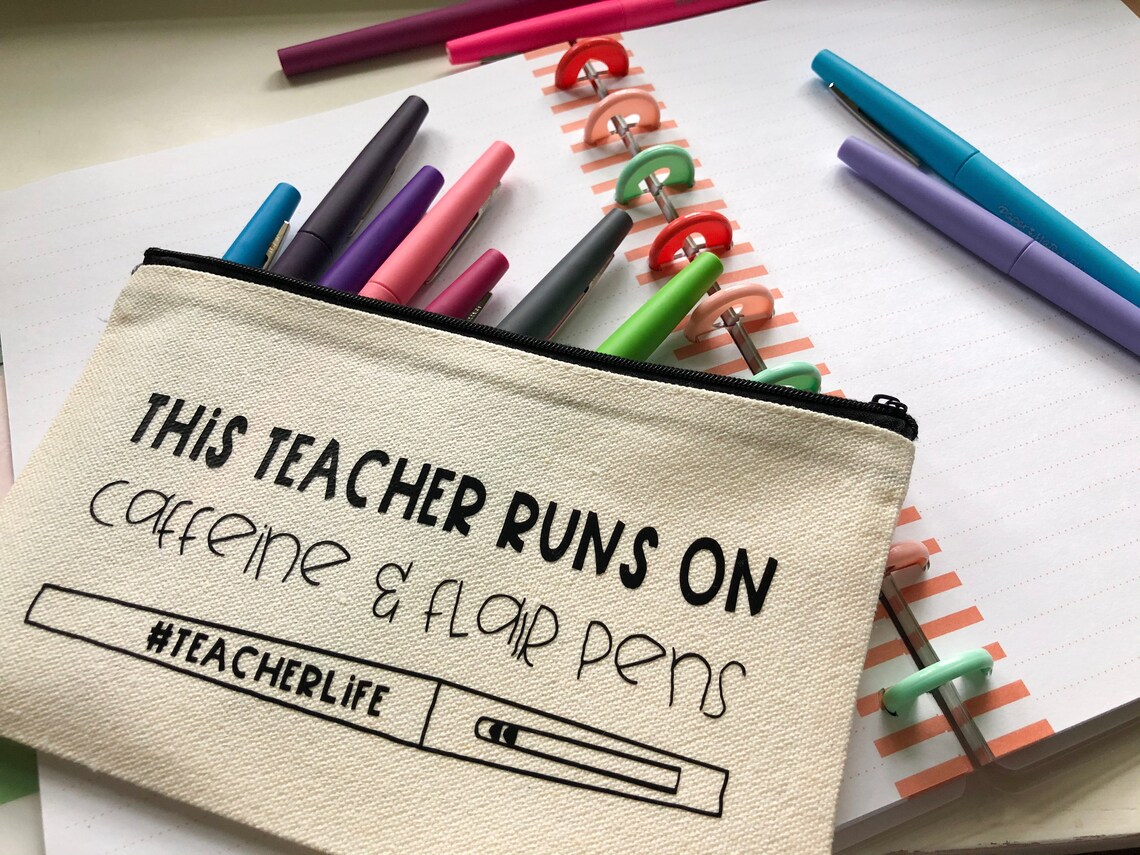 THiS TEACHER RUNS ON
caffeine & flair pens
#TEACHERLiFE